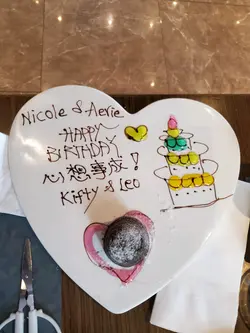 Nicole & Aerie
HAPPY
BIRTHDAY
心想事成!
Kifty & Leo